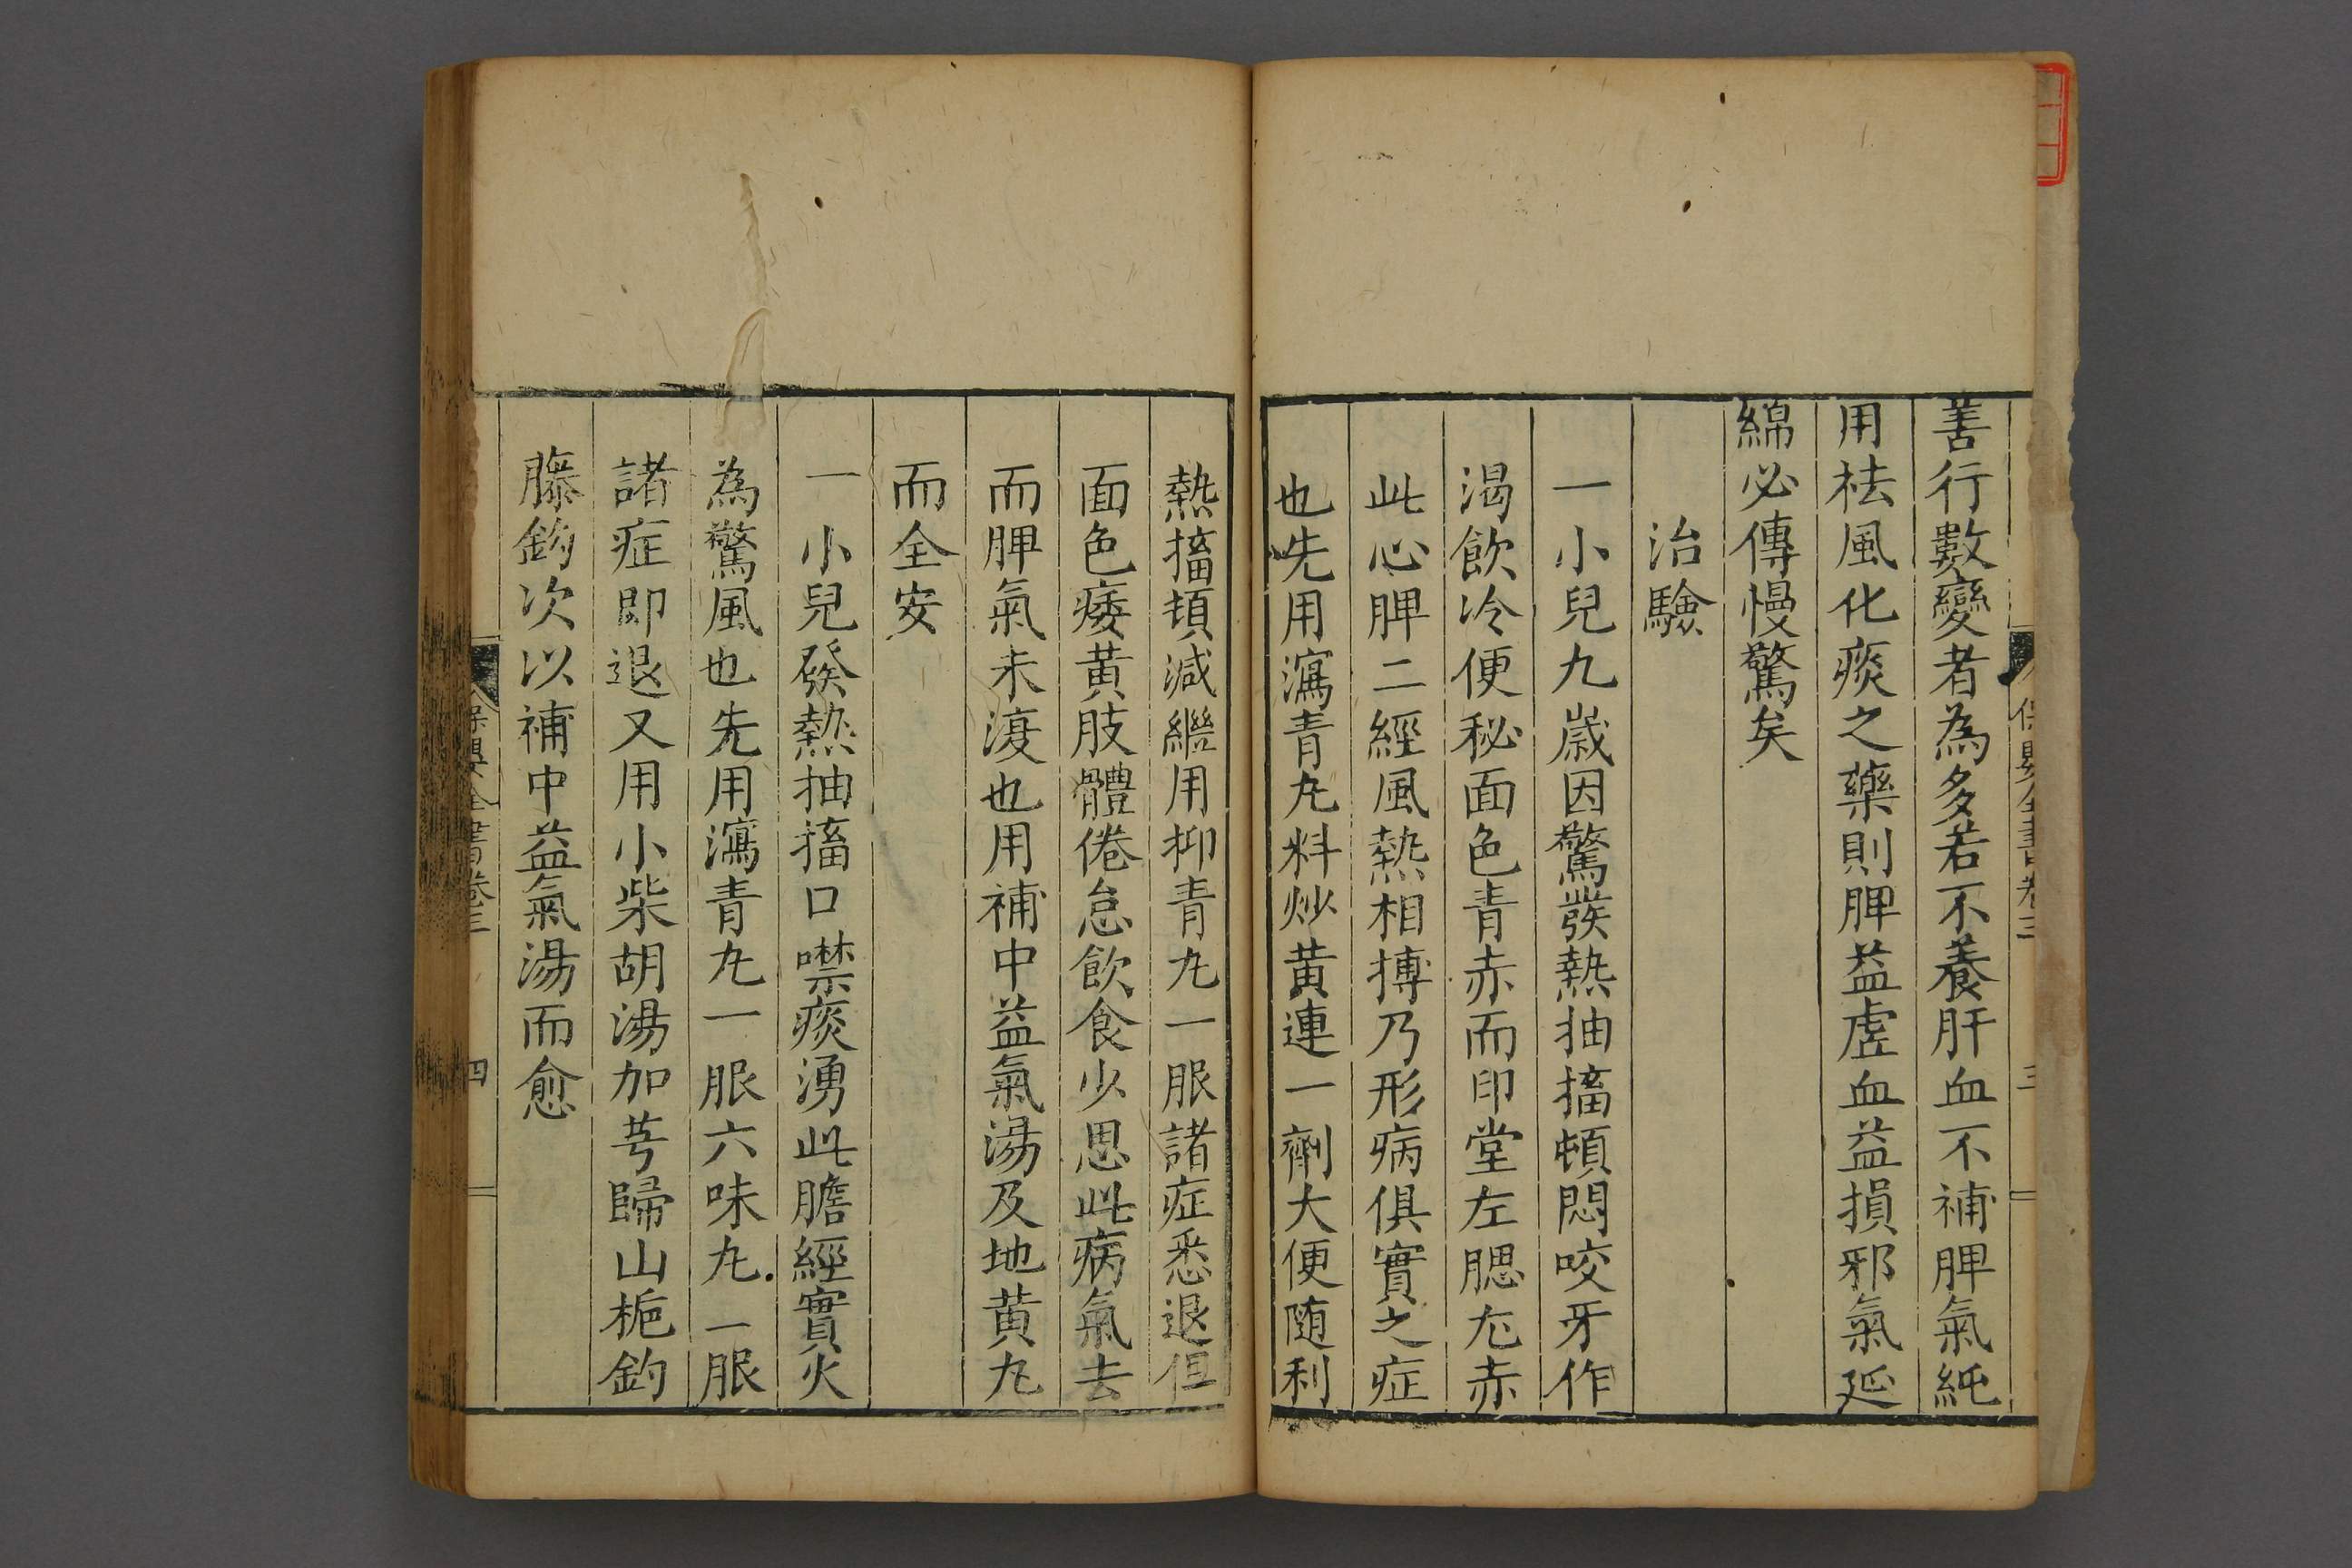 善行數變者為多若不養肝血不補脾氣純
用祛風化痰之藥則脾益虛血益損邪氣延
綿必傳慢驚矣
治驗
一小兒九歲因驚發熱抽搐頓悶咬牙作
渴飲冷便秘面色青赤而印堂左腮尤赤
此心脾二經風熱相搏乃形病俱實之症
也先用瀉青丸料炒黃連一劑大便随利
熱搐頓減繼用抑青丸一服諸症悉退但
面色痿黃肢體倦怠飲食少思此病氣去
而脾氣未復也用補中益氣湯及地黃丸
而全安
一小兒發熱抽搐口噤痰湧此膽經實火
為驚風也先用瀉青丸一服六味丸一服
諸症即退又用小柴胡湯加芎歸山梔釣
藤鈎次以補中益氣湯而愈
全書卷三
三
全書卷三
四